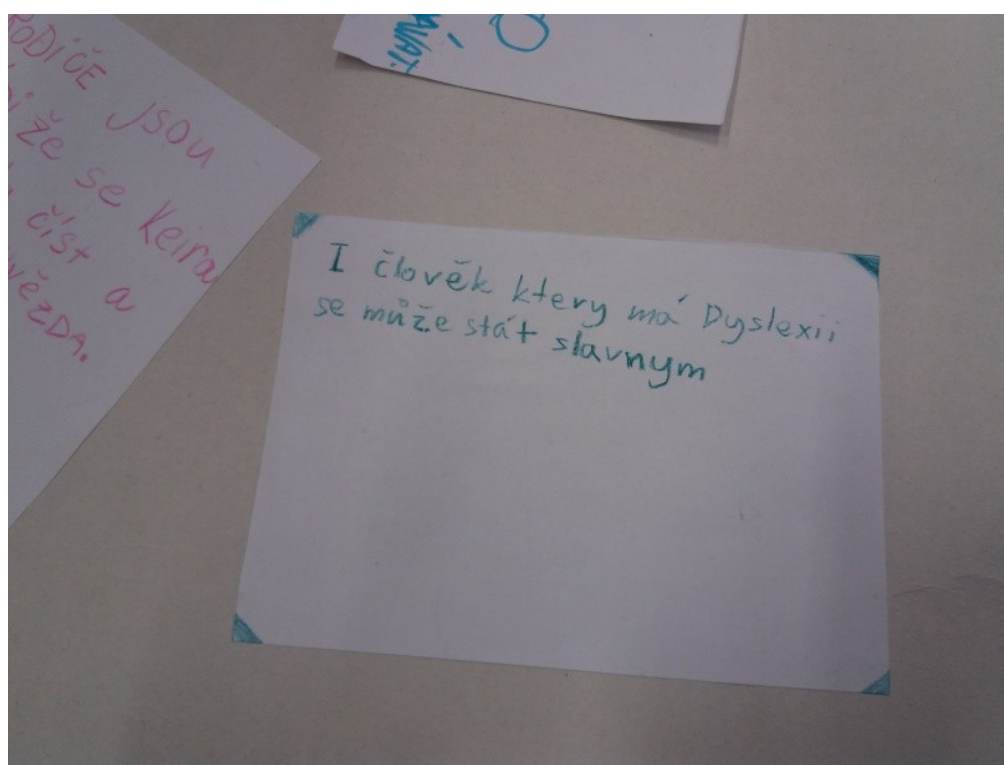 RODIČE jsou
že se Keira
číst a
AVAT.
I člověk ktery má Dyslexii
se může stát slavnym